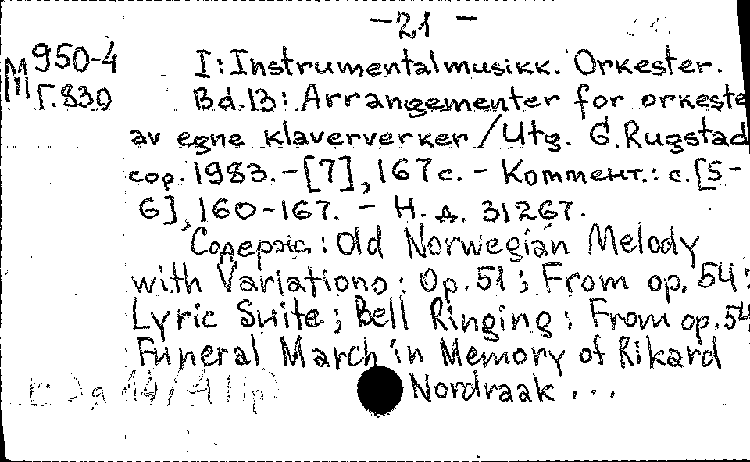 -21 -
М 950-4
Г.830
I: Instrumentalmusikk. Orkester.
Bd.13: Arrangementer for orkeste
av egne klaververker / Utg. G. Rugstad
cop. 1983. - [7], 167 с. - Коммент.: с. [5-
6], 160-167. - Н. д. 31267.
Содерж.: Old Norwegian Melody
with Variations: Op. 51; From op. 54:
Lyric Suite; Bell Ringing: From op. 54
Funeral March in Memory of Rikard
Nordraak ...